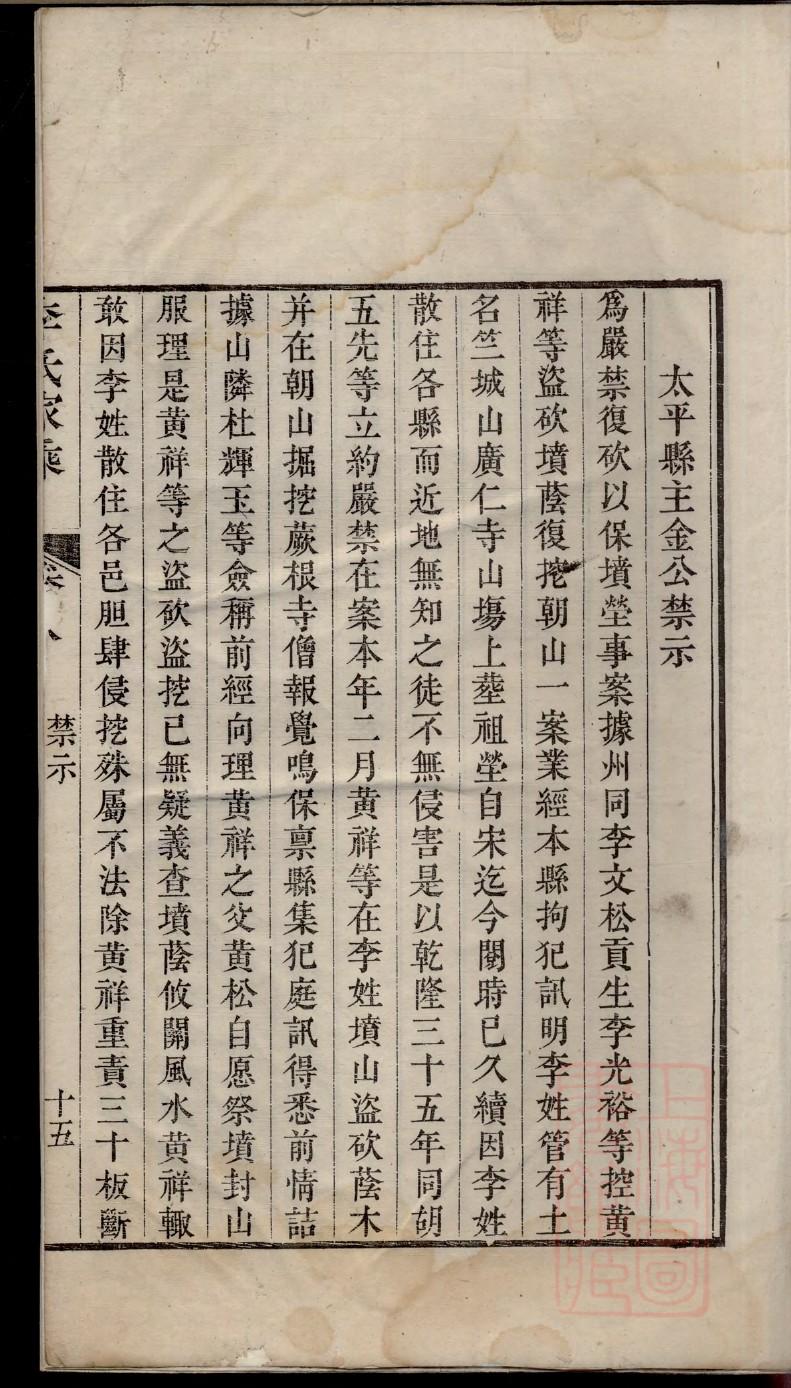 太平縣主金公禁示
爲嚴禁復砍以保墳塋事案據州同李文松貢生李光裕等控黄
祥等盜砍墳蔭復挖朝山一案業經本縣拘犯訊明李姓管有土
名竺城山廣仁寺山塲上塟祖塋自宋迄今閱時已久續因李姓
散住各縣而近地無知之徒不無侵害是以乾隆三十五年同胡
五先等立約嚴禁在案本年二月黄祥等在李姓墳山盜砍蔭木
并在朝山掘挖蕨根寺僧報覺鳴保禀縣集犯庭訊得悉前情詰
據山隣杜輝玉等僉稱前經向理黄祥之父黄松自愿祭墳封山
服理是黄祥等之盜砍盜挖已無疑義查墳蔭攸關風水黄祥輙
敢因李姓散住各邑胆肆侵挖殊屬不法除黄祥重責三十板斷
李氏家乘
卷八
禁示
十五